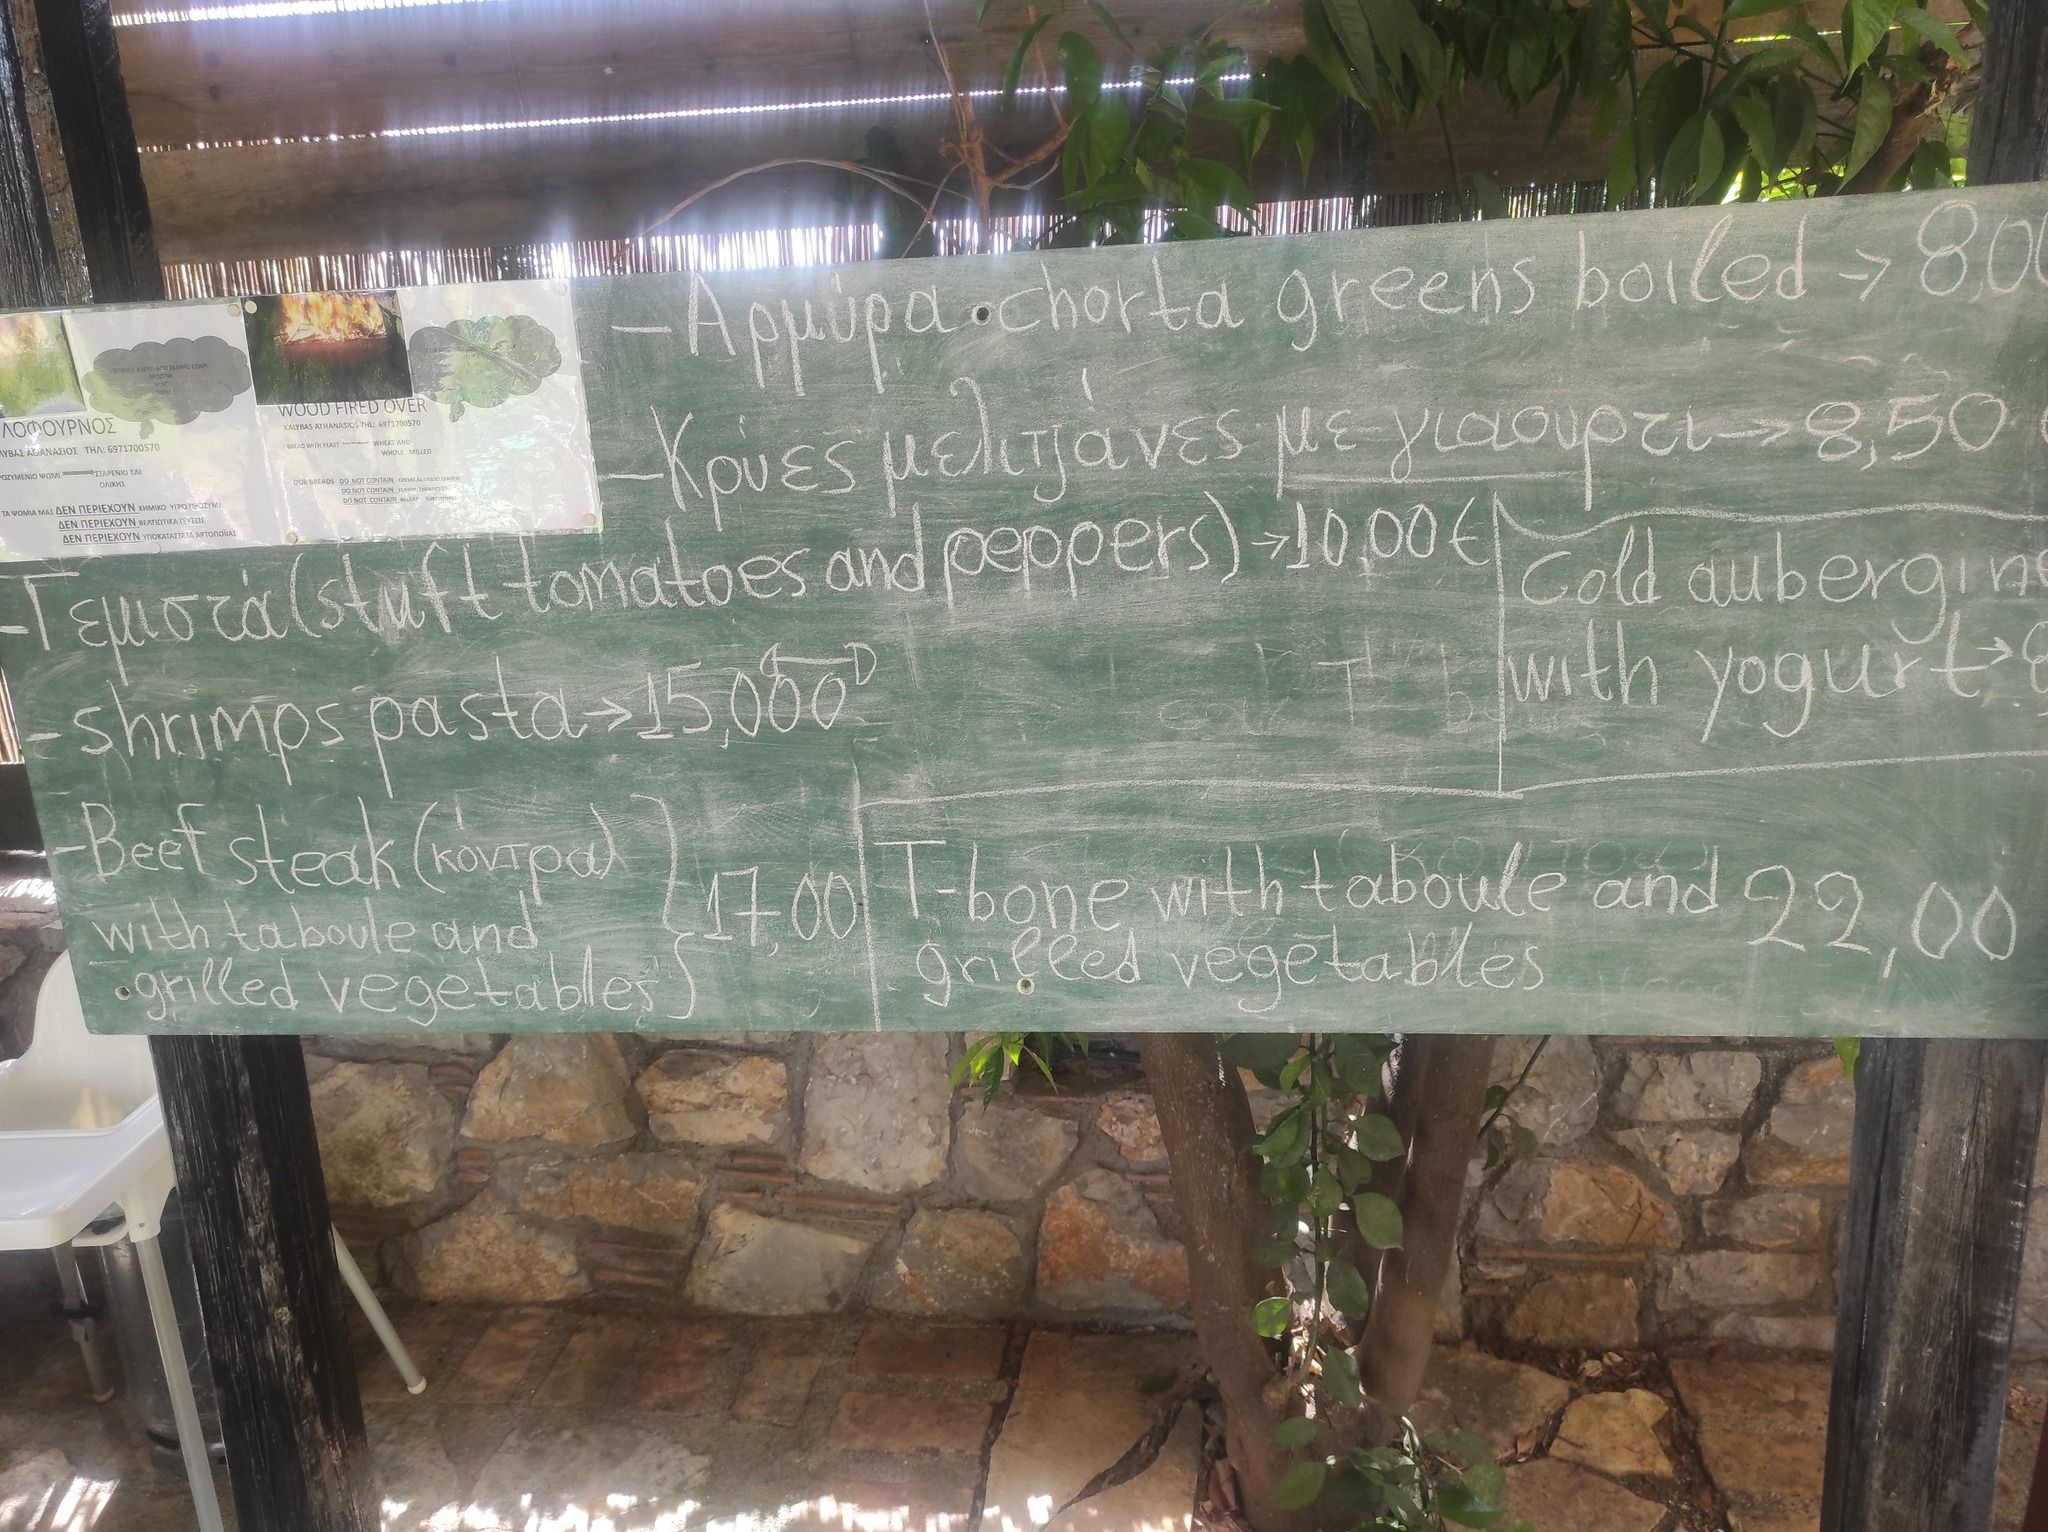 -Αρμύρα chorta greens boiled → 8,00
-Κρυες μελιτζάνες με γιαουρτι → 8,50
-Γεμιστά (stuft tomatoes and peppers) → 10,00€
Cold aubergine
with yogurt → 8
- shrimps pasta → 15,000
-Beef steak (κόντρα)
with taboule and
grilled vegetables
17,00
T-bone with taboule and 22,00
grilled vegetables
ΛΟΦΟΥΡΝΟΣ
ΛΥΒΑΣ ΑΘΑΝΑΣΙΟΣ ΤΗΛ: 6971700570
ΡΟΖΥΜΕΝΙΟ ΨΩΜΙ ΣΤΑΡΕΝΙΟ ΚΑΙ
ΟΛΙΚΗΣ
ΤΑ ΨΩΜΙΑ ΜΑΣ ΔΕΝ ΠΕΡΙΕΧΟΥΝ ΧΗΜΙΚΟ ΥΓΡΟ ΠΡΟΖΥΜΙ
ΔΕΝ ΠΕΡΙΕΧΟΥΝ ΒΕΛΤΙΩΤΙΚΑ ΓΕΥΣΗΣ
ΔΕΝ ΠΕΡΙΕΧΟΥΝ ΥΠΟΚΑΤΑΣΤΑΤΑ ΑΡΤΟΠΟΙΙΑΣ
WOOD FIRED OVER
KALYBAS ATHANASIOS THL: 6971700570
BREAD WITH YEAST WHEAT AND
WHOLE MILLED
OUR BREADS DO NOT CONTAIN CHEMICAL LIQUID
DO NOT CONTAIN FLAVOR
DO NOT CONTAIN BAKERY